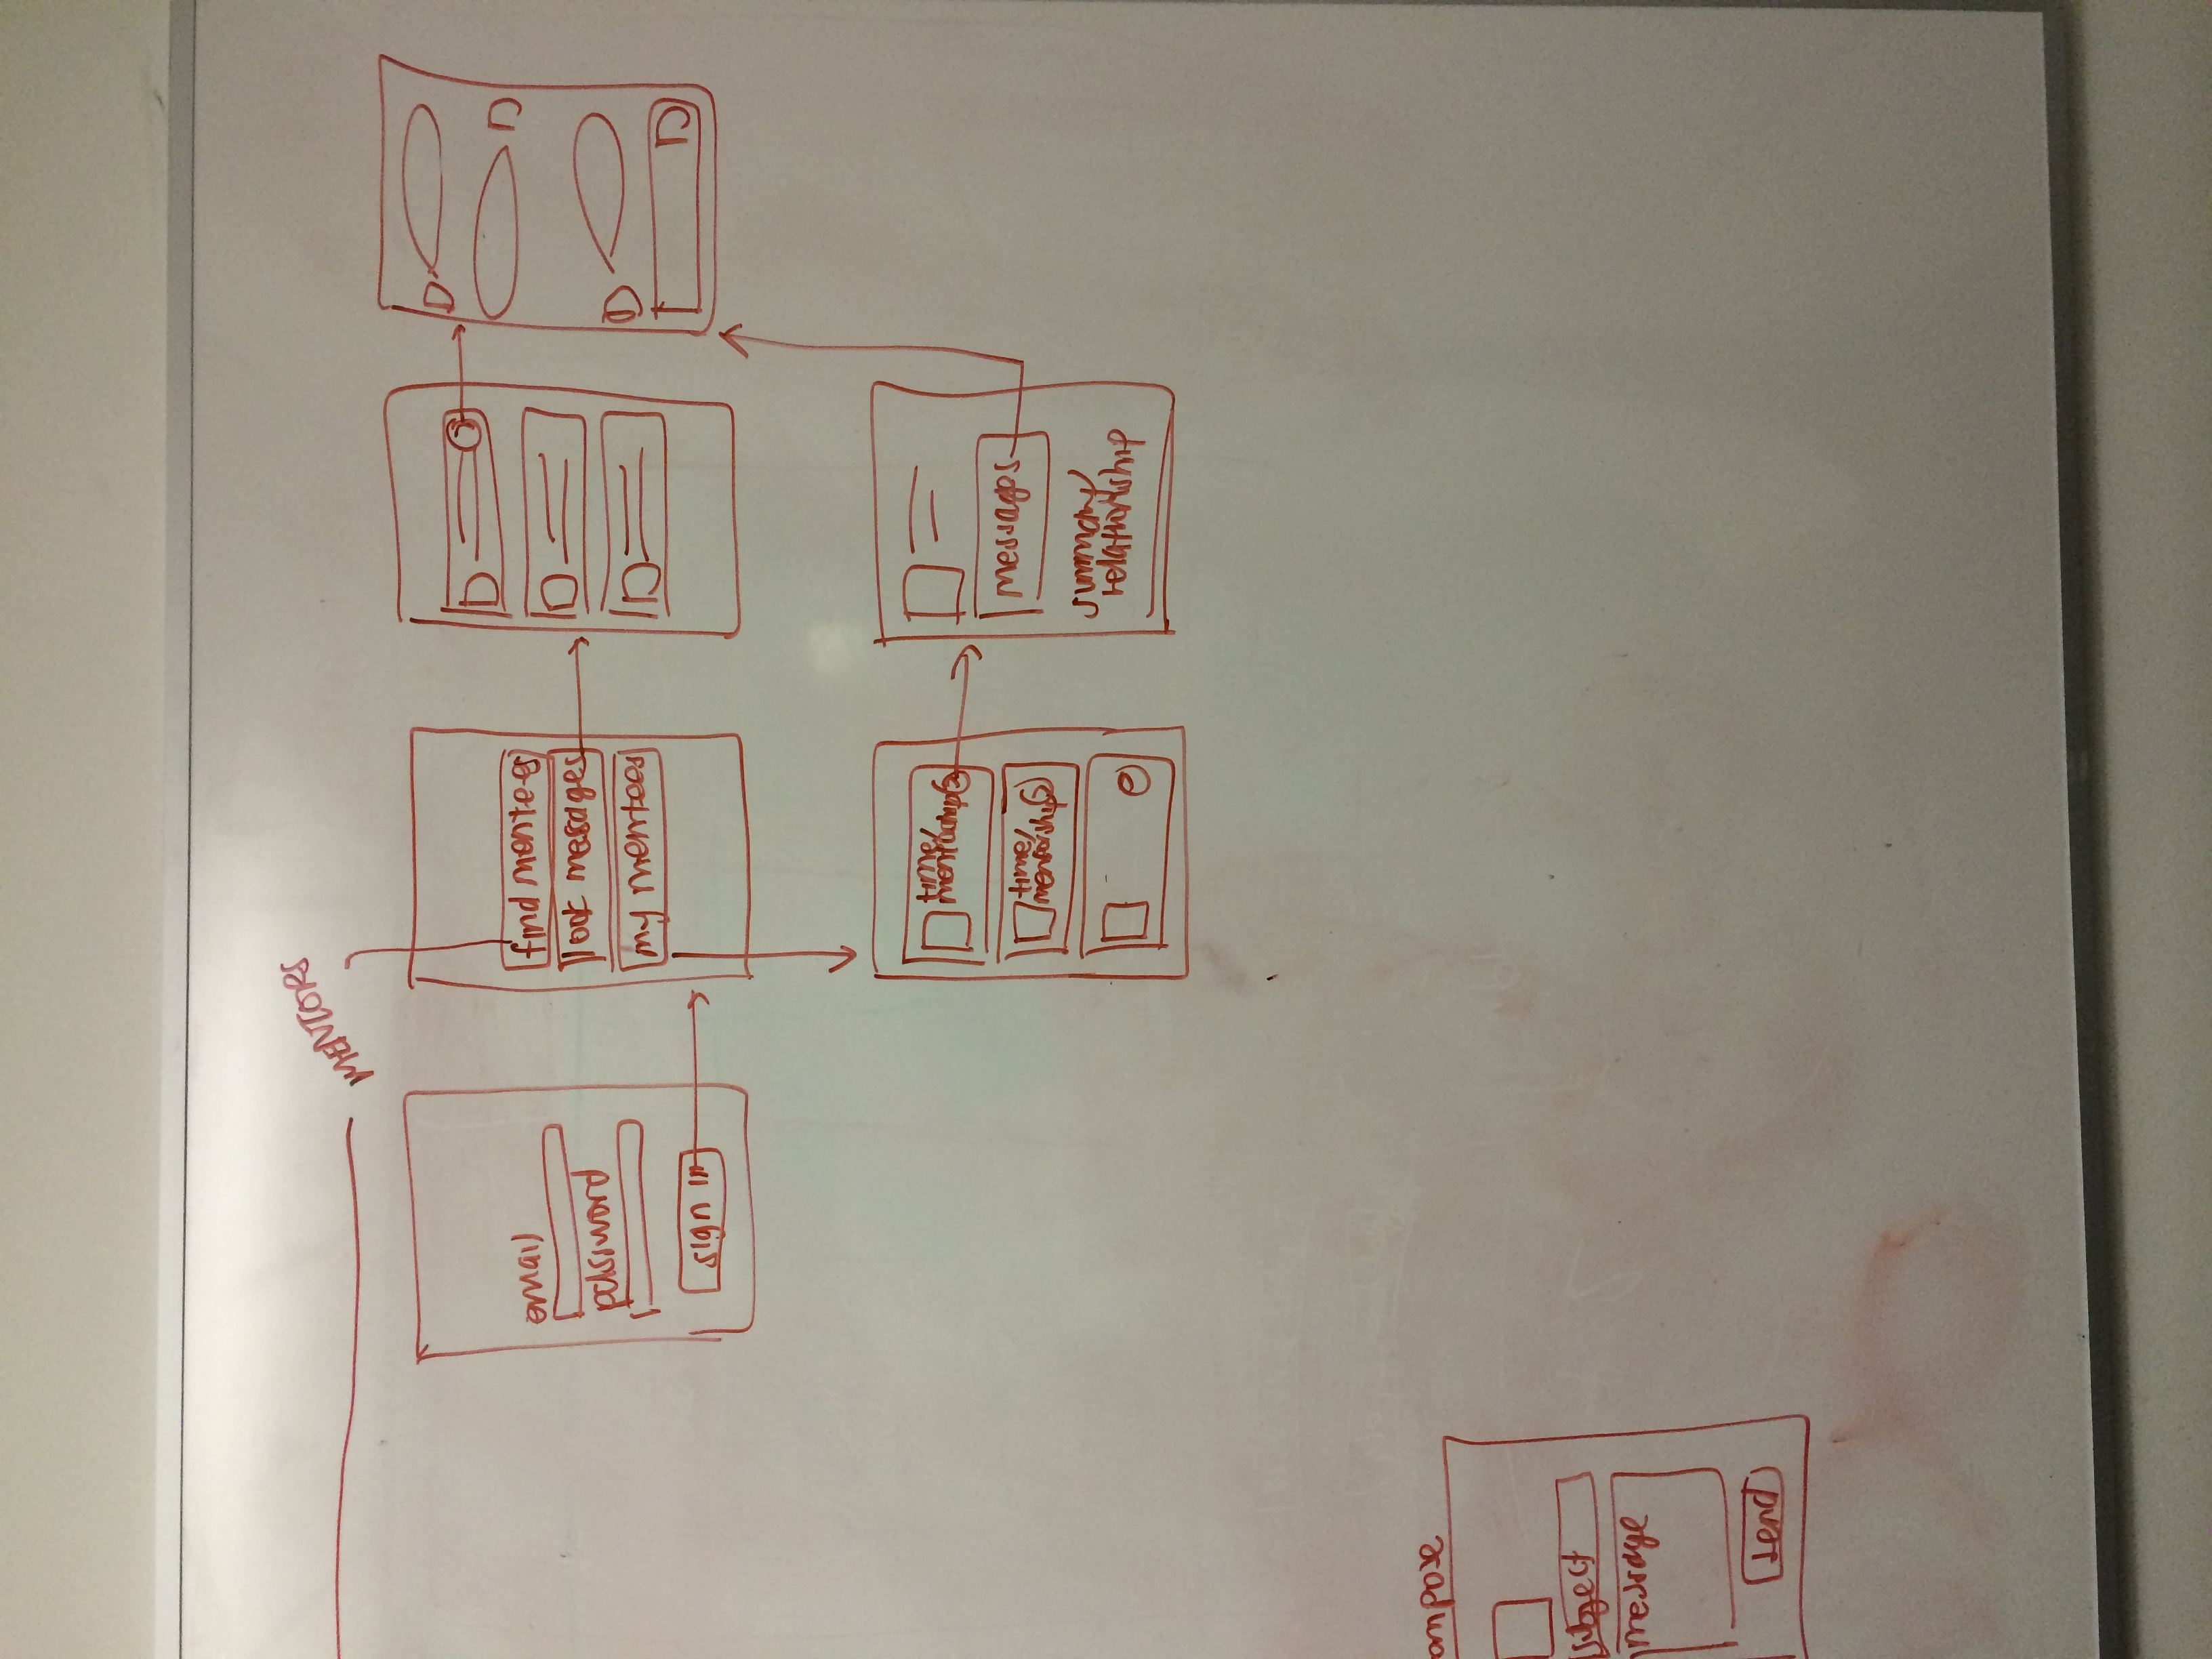 MENTORS
email
password
sign in
find mentees
look messages
my mentees
time/
mentorship
time/
mentorship
messages
summary/
relationship
ompose
subject
message
send